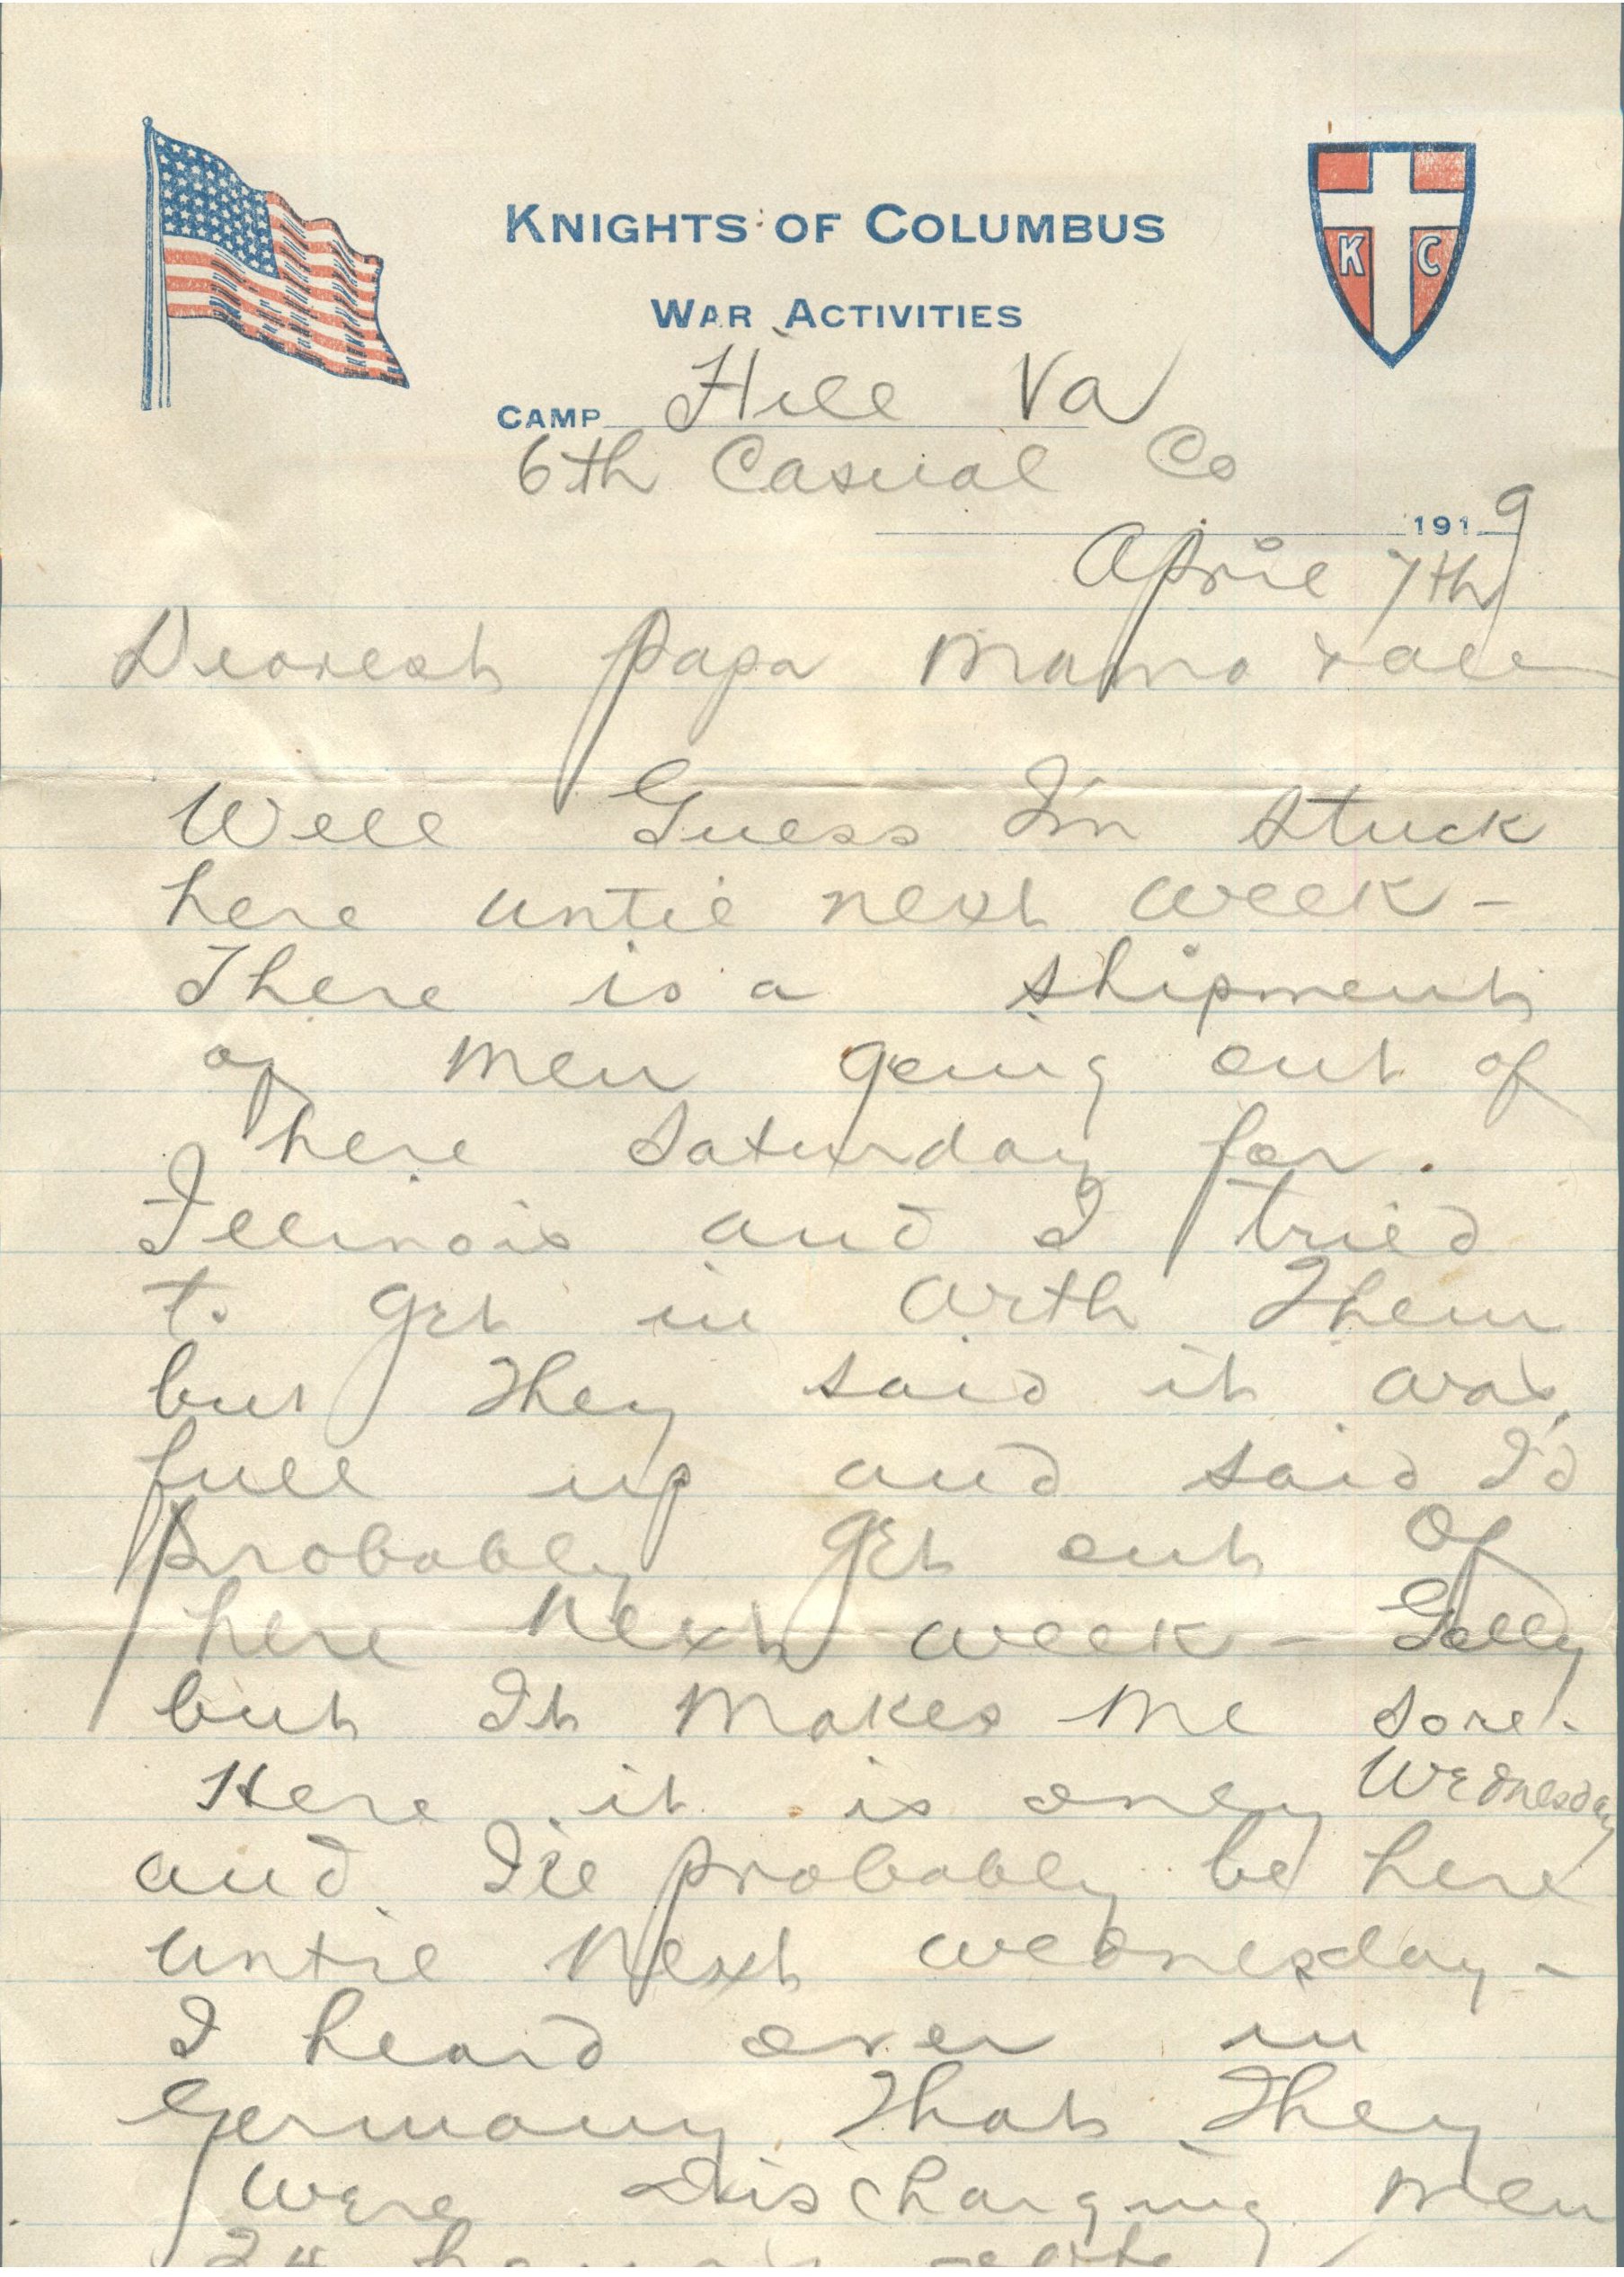 KNIGHTS OF COLUMBUS
WAR ACTIVITIES
K C
CAMP Hill Va
6th Casual Co
1919
April 7th
Dearest Papa Mama & all
Well Guess I'm stuck
here until next week -
There is a shipment
of men going out of
here Saturday for
Illinois and I tried
to get in with them
but they said it was
full up and said I'd
probably get out of
here next week - Golly
but It makes me sore.
Here it is only Wednesday
and I'll probably be here
until next wednesday -
I heard over in
Germany that they
were discharging men
24 hours